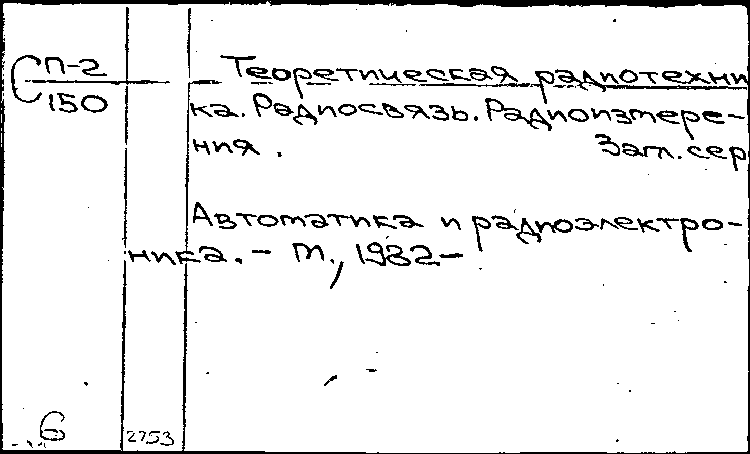 С П-2
150
Теоретическая радиотехни
ка. Радиосвязь. Радиоизмере-
ния. Загл. сер
Автоматика и радиоэлектро-
ника. - М., 1982-
6
2753